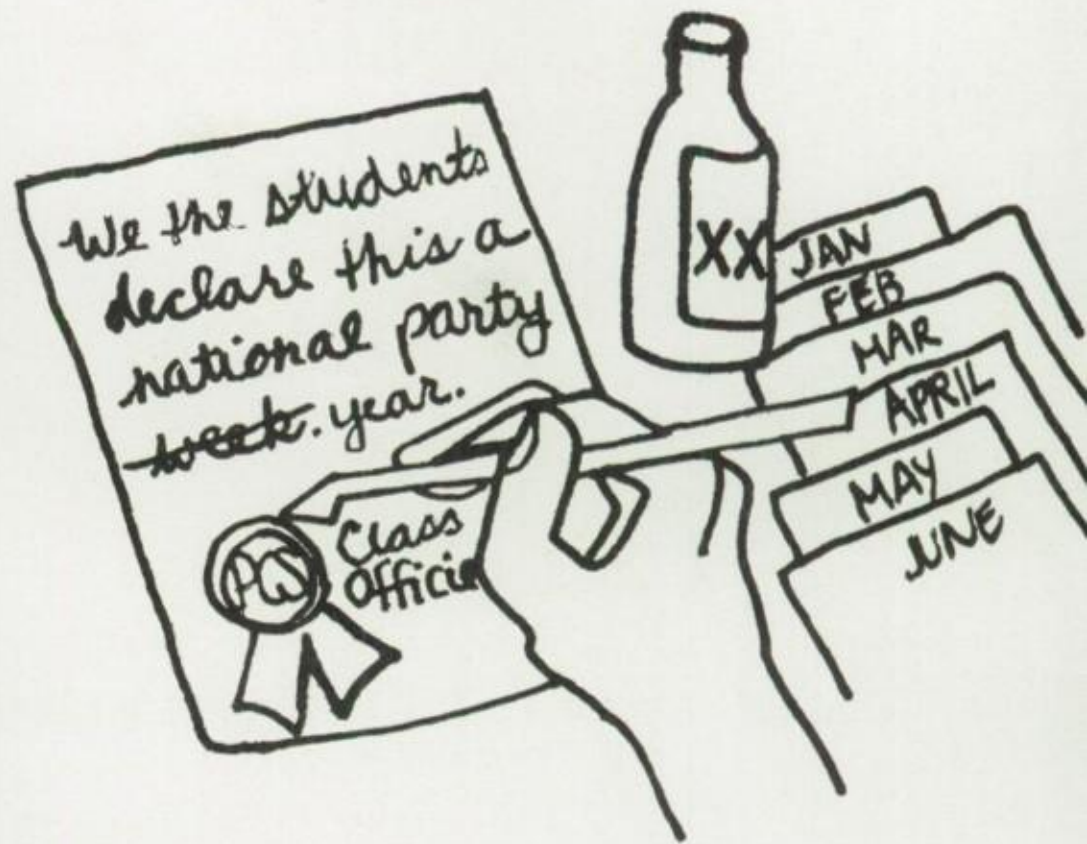 We the students
declare this a
national party
week. year.
PCS
Class
Officie
XX
JAN
FEB
MAR
APRIL
MAY
JUNE